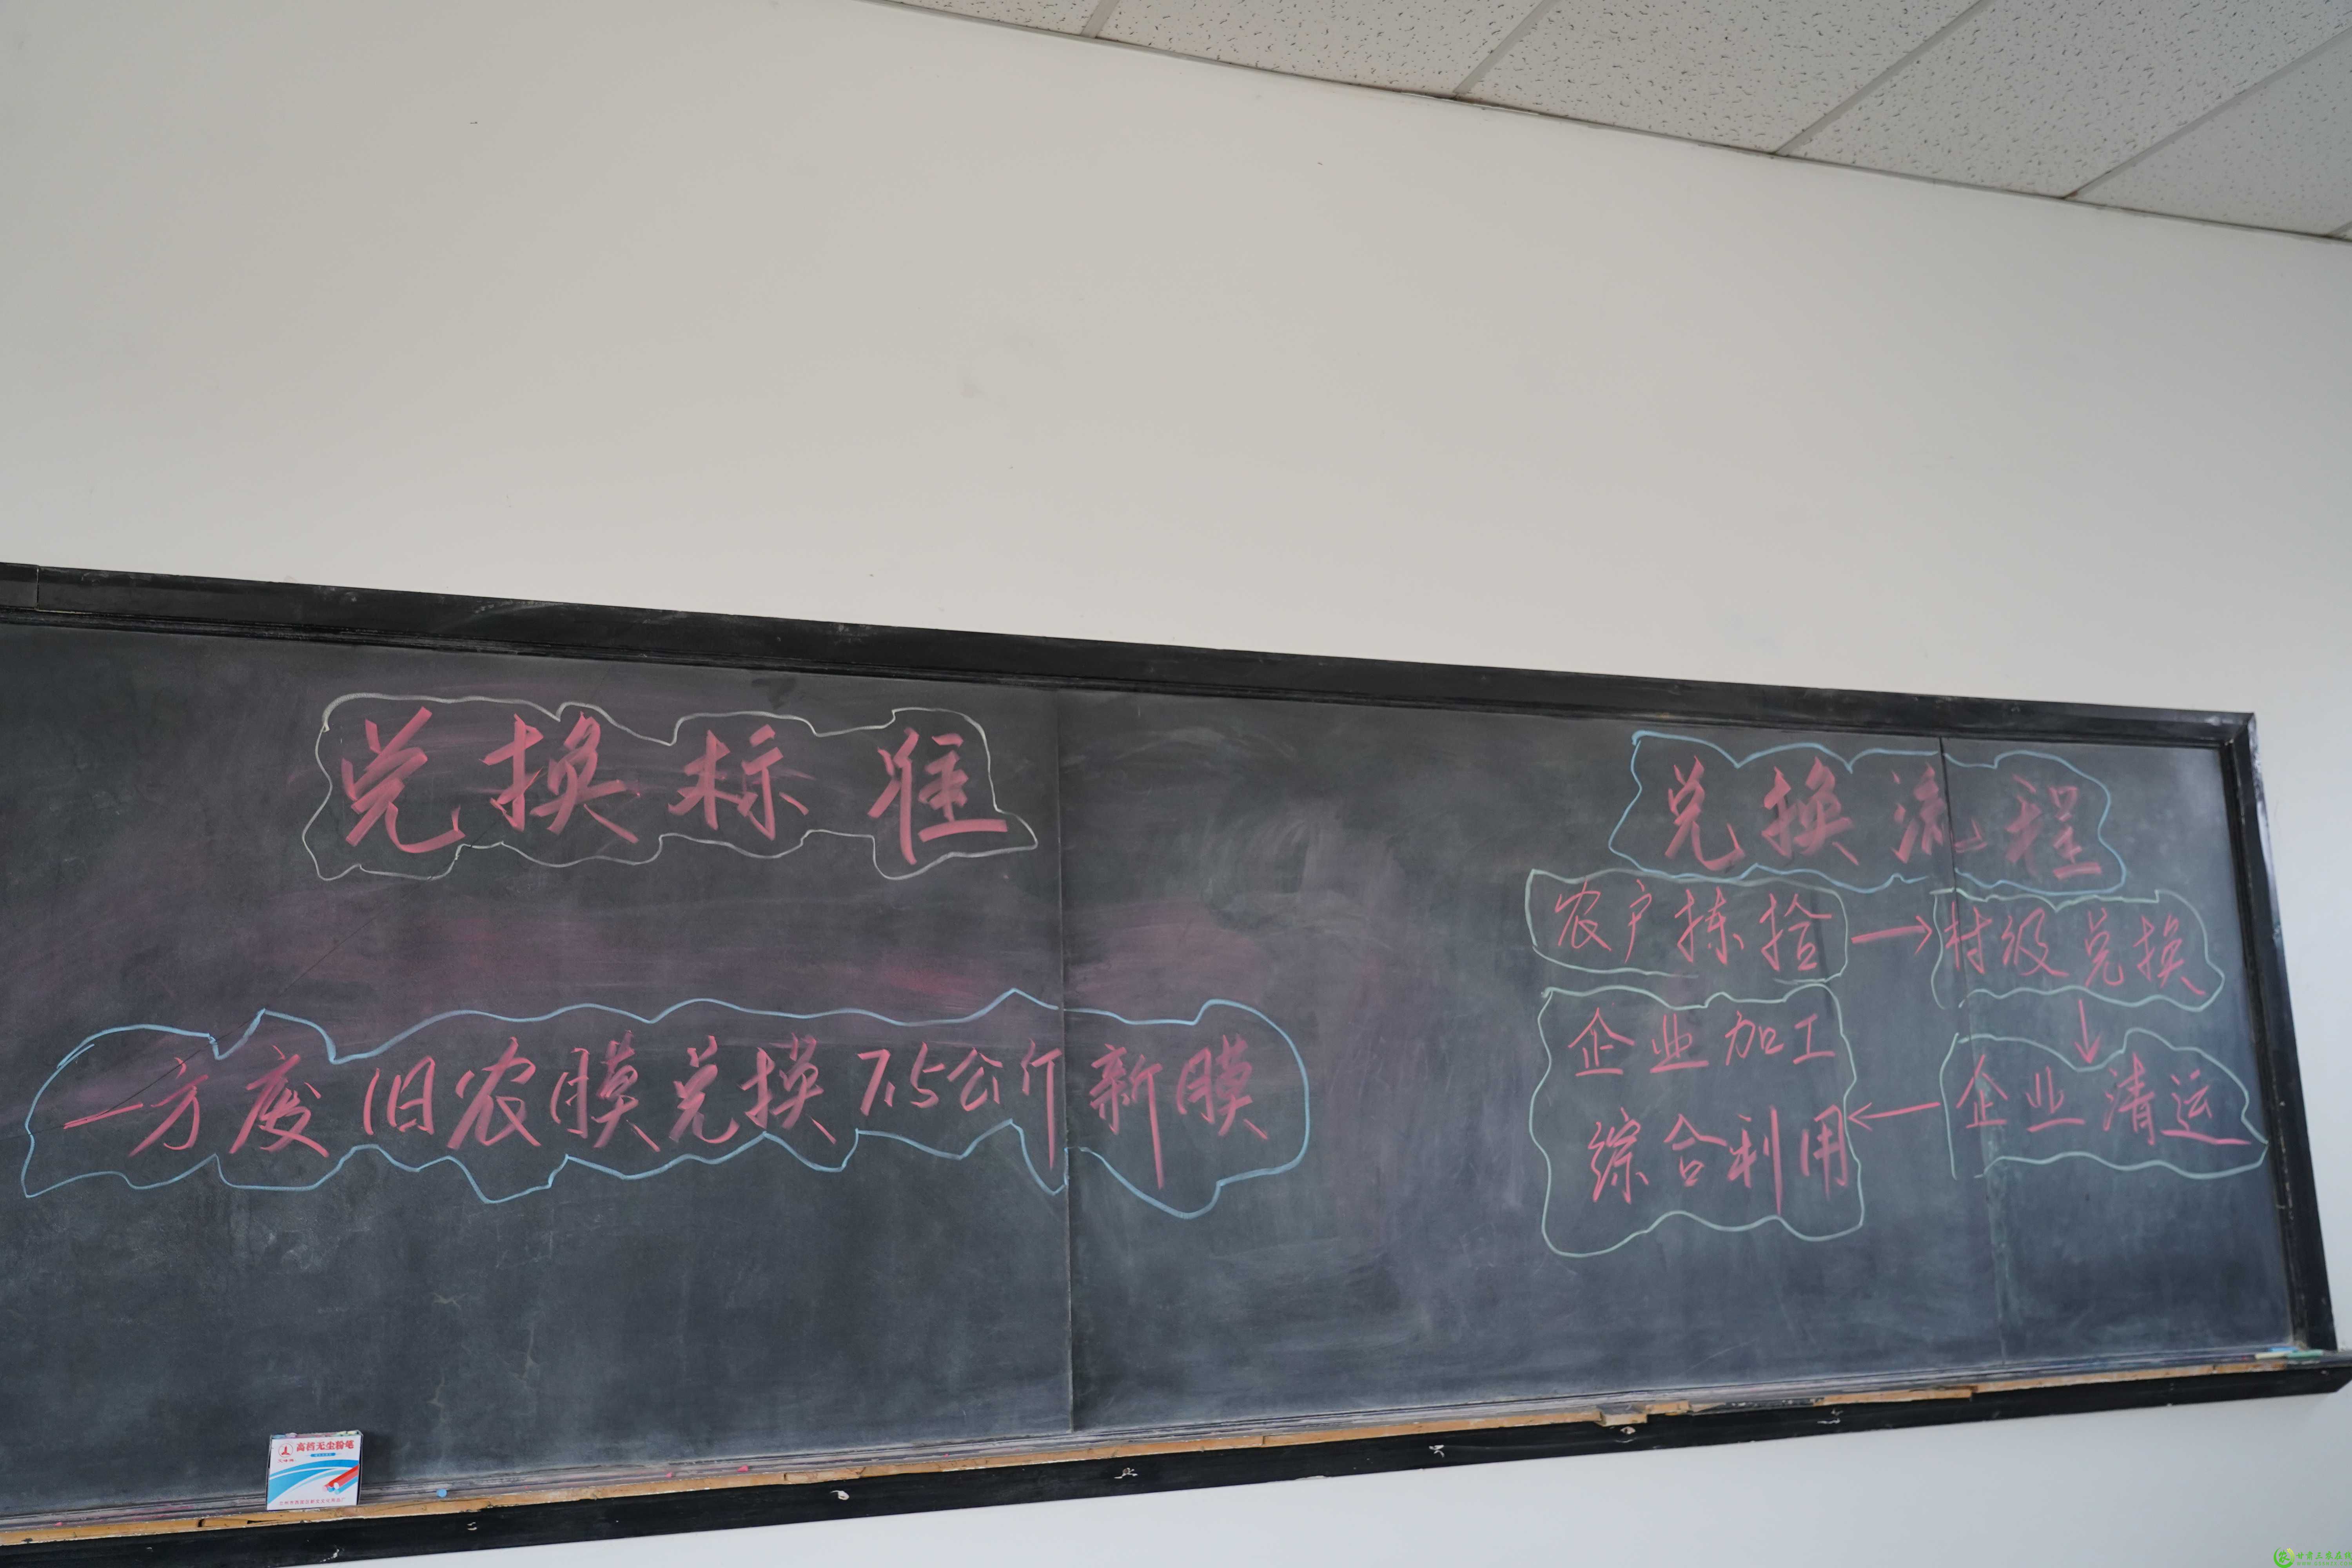 兑换标准
一方废旧农膜兑换7.5公斤新膜
兑换流程
农户拣拾→村级兑换
↓
企业清运
←
企业加工
综合利用
高档无尘粉笔
甘肃三农在线